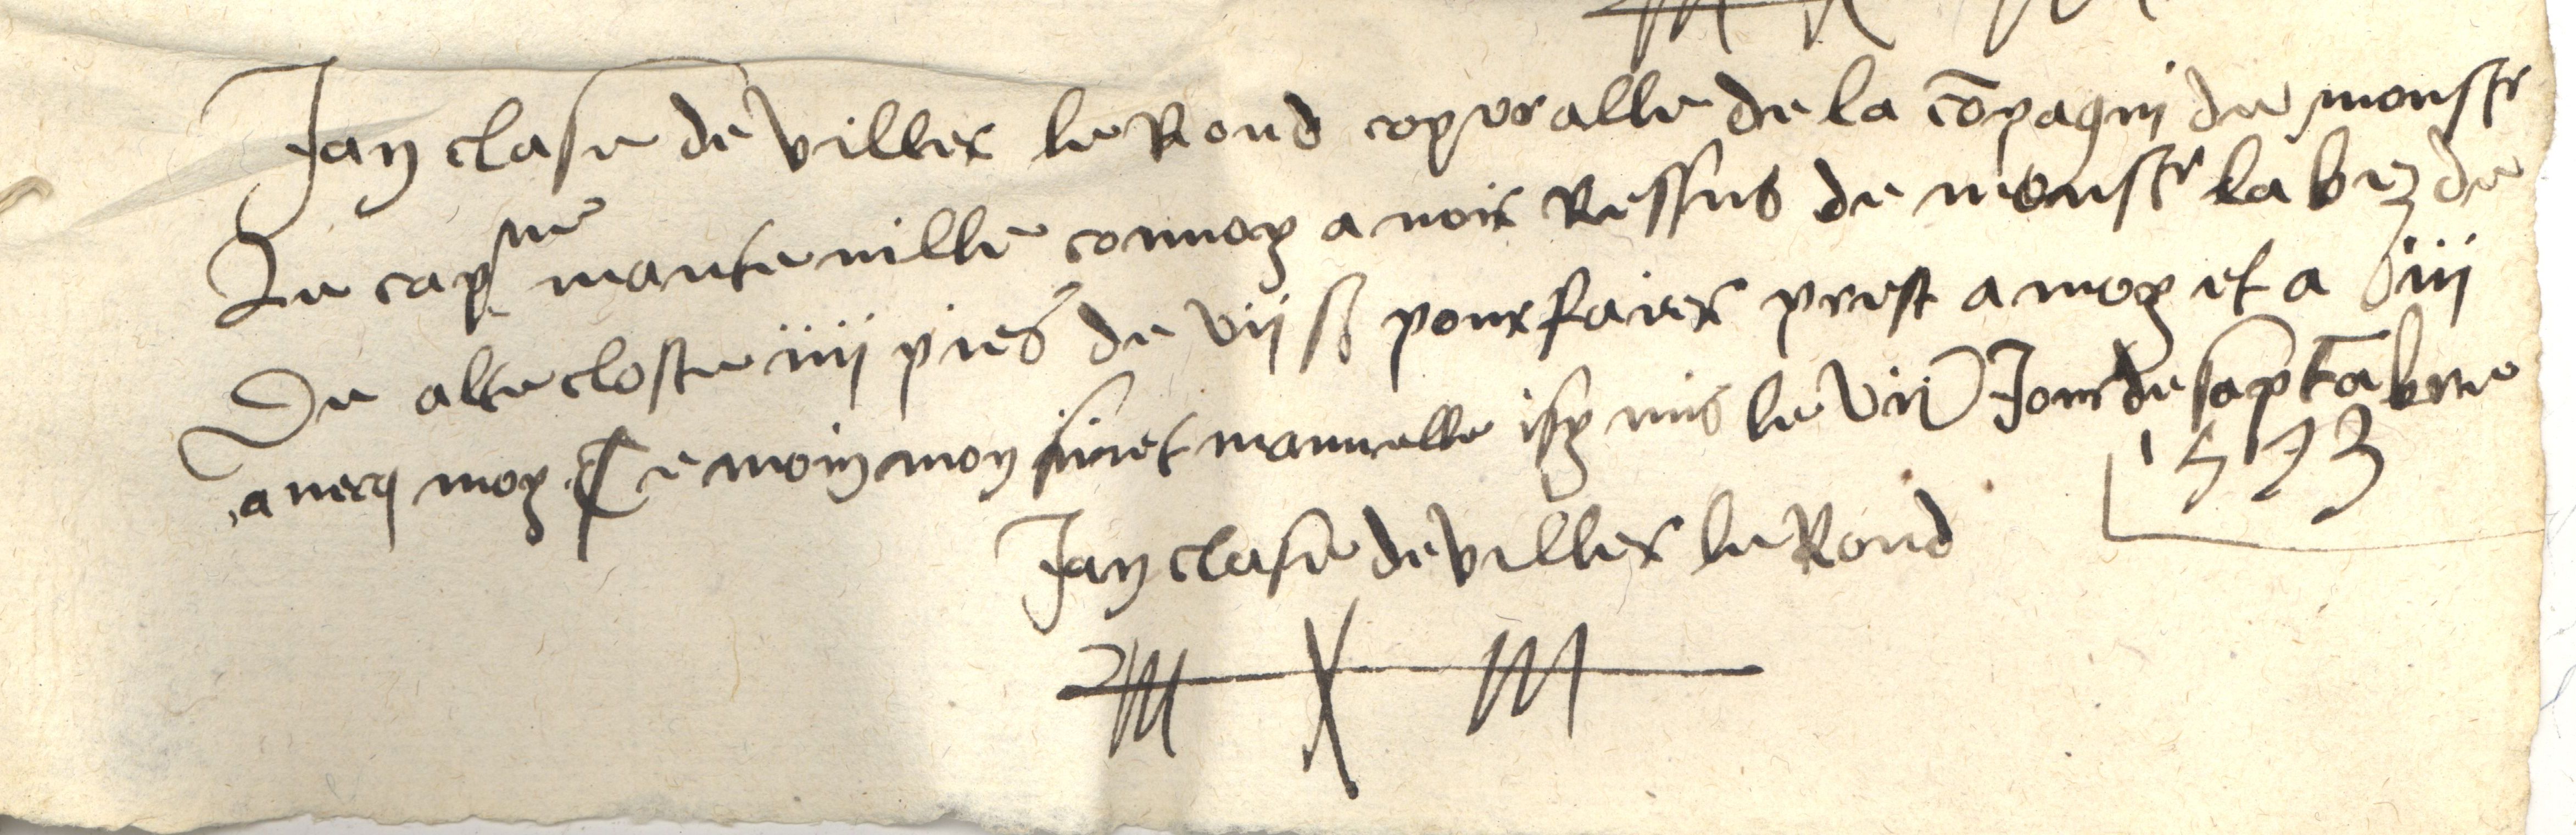 Jan clase de viller le Rond copr̄alle de la cōpagni de monsr
Le capne mantenville connoy avoir Ressus de monsr labez de
De alteclostre iiii pies de vii ß pour faire prest a moy et a iii
avecq moy Temoin mon sinet manuelle isy mis le viie Jour de saptābre
1573
Jan clase de viller le Rond